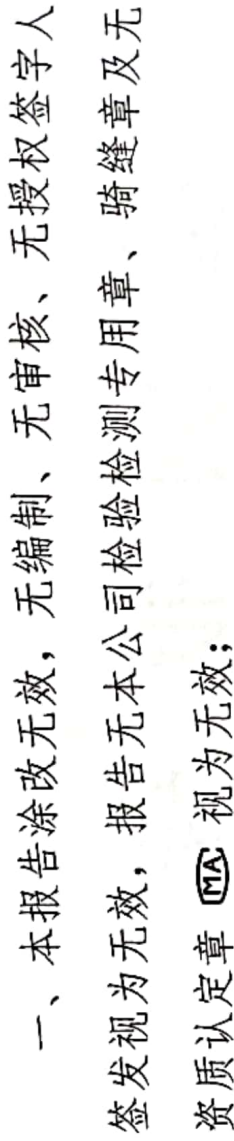 一、本报告涂改无效，无编制、无审核、无授权签字人
签发视为无效，报告无本公司检验检测专用章、骑缝章及无
资质认定章 MA 视为无效；